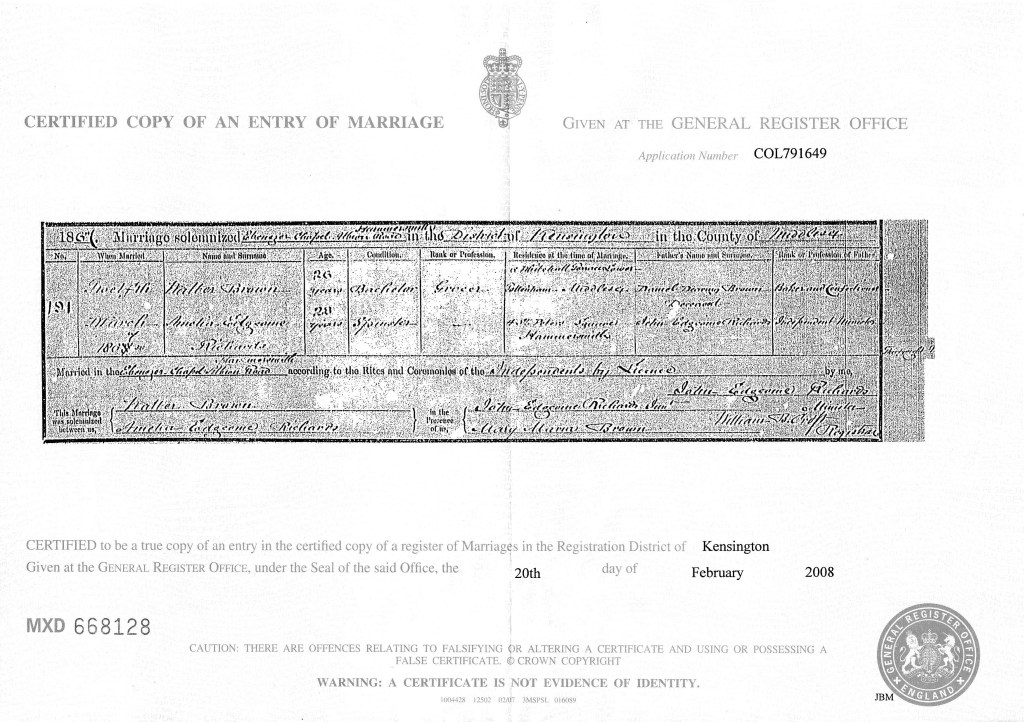 CERTIFIED COPY OF AN ENTRY OF MARRIAGE
GIVEN AT THE GENERAL REGISTER OFFICE
Application Number COL791649
Marriage solemnized Ebenezer Chapel Albion Road Hammersmith in the District of Kensington in the County of Middlesex
No. When Married. Name and Surname Age. Condition. Rank or Profession. Residence at the time of Marriage. Father's Name and Surname. Rank or Profession of Father.
191 Twelfth March Walter Brown 26 years Bachelor Grocer Tottenham Middlesex Daniel Brown Deceased Baker and Confectioner
Amelia Edgcome Richards years Spinster — Square Hammersmith John Edgcome Richards Independent Minister
Married in the Ebenezer Chapel Albion Road Hammersmith according to the Rites and Ceremonies of the Independents by Licence by me,
John Edgcome Richards
Minister
This Marriage was solemnized between us,
Walter Brown
Amelia Edgcome Richards
in the Presence of us,
John Edgcome Richards Junr
Mary Maria Brown
William
Registrar
CERTIFIED to be a true copy of an entry in the certified copy of a register of Marriages in the Registration District of Kensington
Given at the GENERAL REGISTER OFFICE, under the Seal of the said Office, the 20th day of February 2008
MXD 668128
CAUTION: THERE ARE OFFENCES RELATING TO FALSIFYING OR ALTERING A CERTIFICATE AND USING OR POSSESSING A
FALSE CERTIFICATE. © CROWN COPYRIGHT
WARNING: A CERTIFICATE IS NOT EVIDENCE OF IDENTITY.
1004428 12502 02/07 3MSPSL 016089
GENERAL REGISTER OFFICE
ENGLAND
JBM